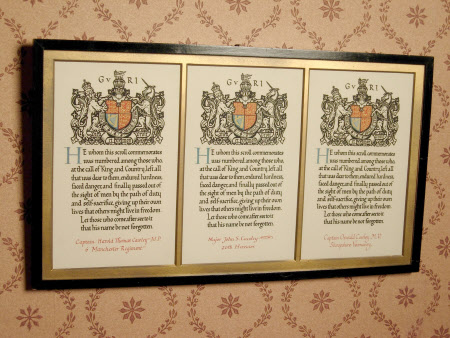 G V R I
HE whom this scroll commemorates
was numbered among those who,
at the call of King and Country, left all
that was dear to them, endured hardness,
faced danger, and finally passed out of
the sight of men by the path of duty
and self-sacrifice, giving up their own
lives that others might live in freedom.
Let those who come after see to it
that his name be not forgotten.
Captain Harold Thomas Cawley M.P.
Manchester Regiment
G V R I
HE whom this scroll commemorates
was numbered among those who,
at the call of King and Country, left all
that was dear to them, endured hardness,
faced danger, and finally passed out of
the sight of men by the path of duty
and self-sacrifice, giving up their own
lives that others might live in freedom.
Let those who come after see to it
that his name be not forgotten.
Major John S. Cawley
20th Hussars
G V R I
HE whom this scroll commemorates
was numbered among those who,
at the call of King and Country, left all
that was dear to them, endured hardness,
faced danger, and finally passed out of
the sight of men by the path of duty
and self-sacrifice, giving up their own
lives that others might live in freedom.
Let those who come after see to it
that his name be not forgotten.
Captain Oswald Cawley, M.P.
Shropshire Yeomanry